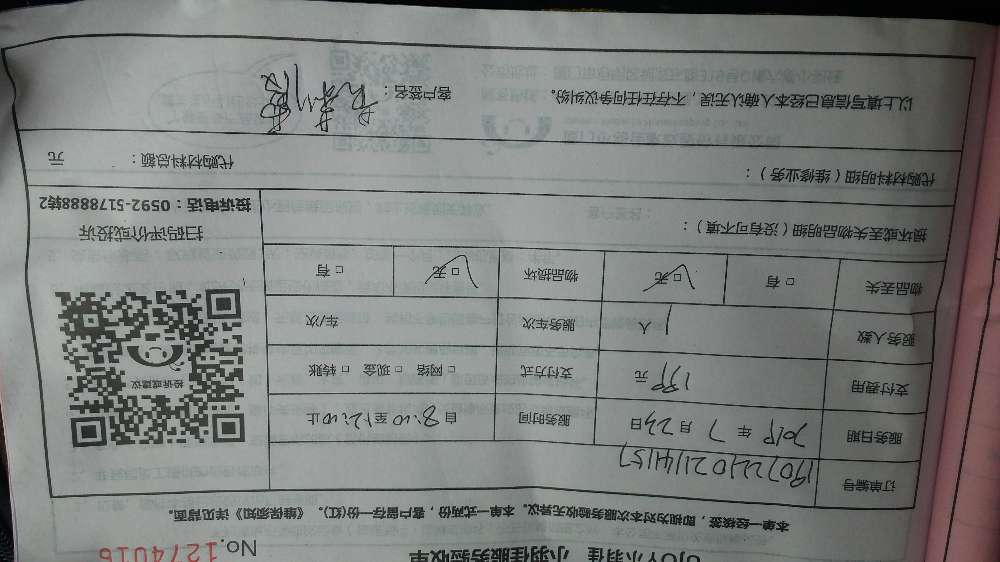 小羽佳 小羽佳服务验收单
No.1274016
本单一经核签，即视为对本次服务验收无异议。本单一式两份，客户留存一份(红)。《维保须知》详见背面。
订单编号
服务日期 2019年7月23日 服务时间 自8:10至12:10止
支付费用 199元 支付方式 □ 网络 □ 现金 □ 转账
服务人数 1人 服务车次 车/次
物品丢失 □ 有 □ 无 物品损坏 □ 无 □ 有
损坏或丢失物品明细（没有可不填）：
代购材料明细（维修业务）：
代购材料总额： 元
以上填写信息已经本人确认无误，不存在任何争议纠纷。
客户签名：
投诉或建议
扫码评价或投诉
投诉电话：0592-5178888转2